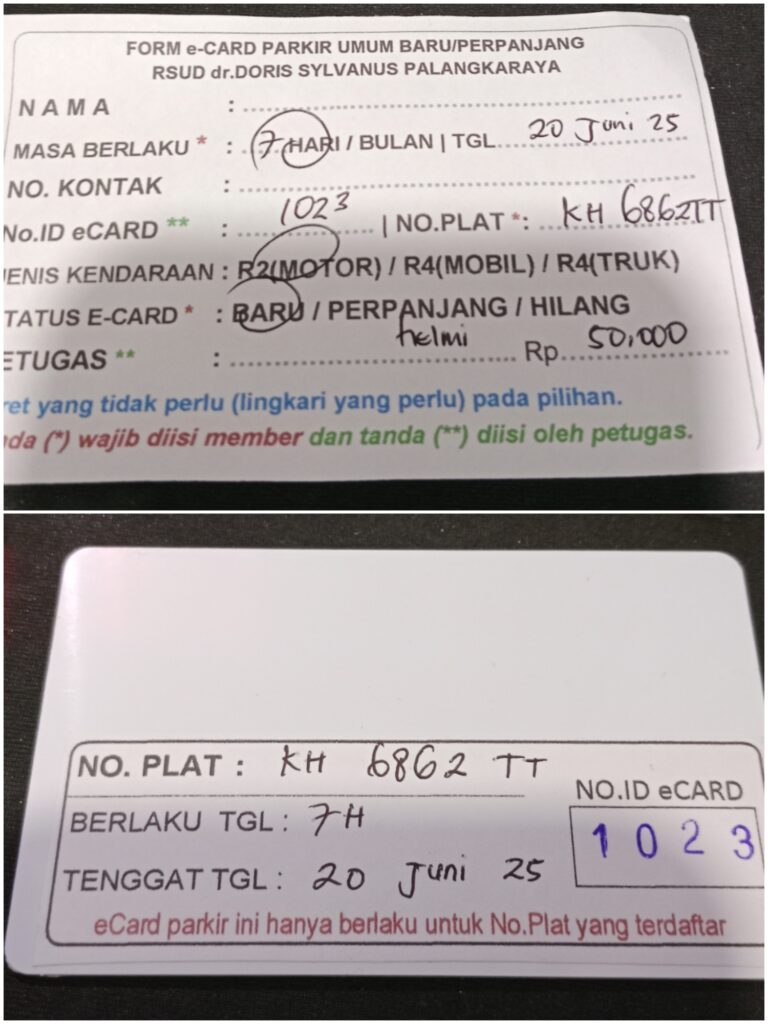 FORM e-CARD PARKIR UMUM BARU/PERPANJANG
RSUD dr.DORIS SYLVANUS PALANGKARAYA
NAMA :
MASA BERLAKU * : 7 HARI / BULAN | TGL 20 Juni 25
NO. KONTAK :
No.ID eCARD ** : 1023 | NO.PLAT *: KH 6862TT
JENIS KENDARAAN : R2(MOTOR) / R4(MOBIL) / R4(TRUK)
TATUS E-CARD * : BARU / PERPANJANG / HILANG
ETUGAS ** : helmi Rp 50,000
ret yang tidak perlu (lingkari yang perlu) pada pilihan.
da (*) wajib diisi member dan tanda (**) diisi oleh petugas.
NO. PLAT : KH 6862 TT
NO.ID eCARD
BERLAKU TGL : 7H
1023
TENGGAT TGL : 20 Juni 25
eCard parkir ini hanya berlaku untuk No.Plat yang terdaftar